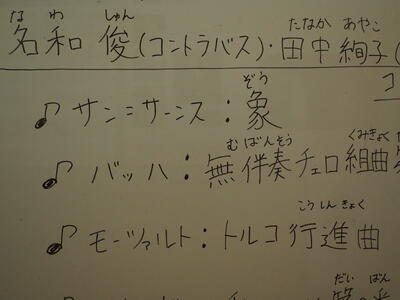 なわ しゅん たなか あやこ
名和 俊(コントラバス)・田中絢子(
ぞう コ
♪ サン=サーンス:象
むばんそう くみきょく
♪ バッハ:無伴奏チェロ組曲
こうしんきょく
♪ モーツァルト:トルコ行進曲
だい ばん